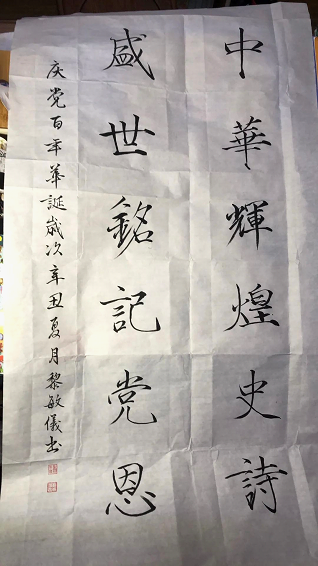 中華輝煌史詩
盛世銘記党恩
庆党百年華誕歲次辛丑夏月黎敏儀书